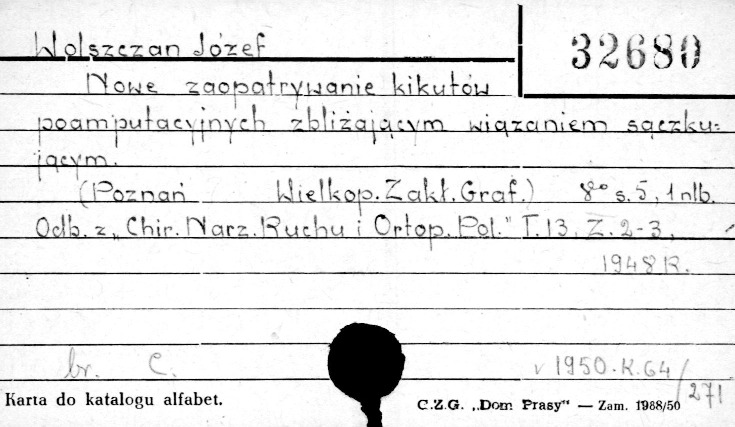 Wolszczan Józef
32680
Nowe zaopatrywanie kikutów
poamputacyjnych zbliżającym wiązaniem sączku=
jącym.
(Poznań Wielkop. Zakł. Graf.) 8° s. 5, 1 nlb.
Odb. z „Chir. Narz. Ruchu i Ortop. Pol." T. 13, Z. 2-3,
1948 R.
br. C.
v 1950. K. 64/271
Karta do katalogu alfabet.
C.Z.G. „Dom Prasy" — Zam. 1988/50